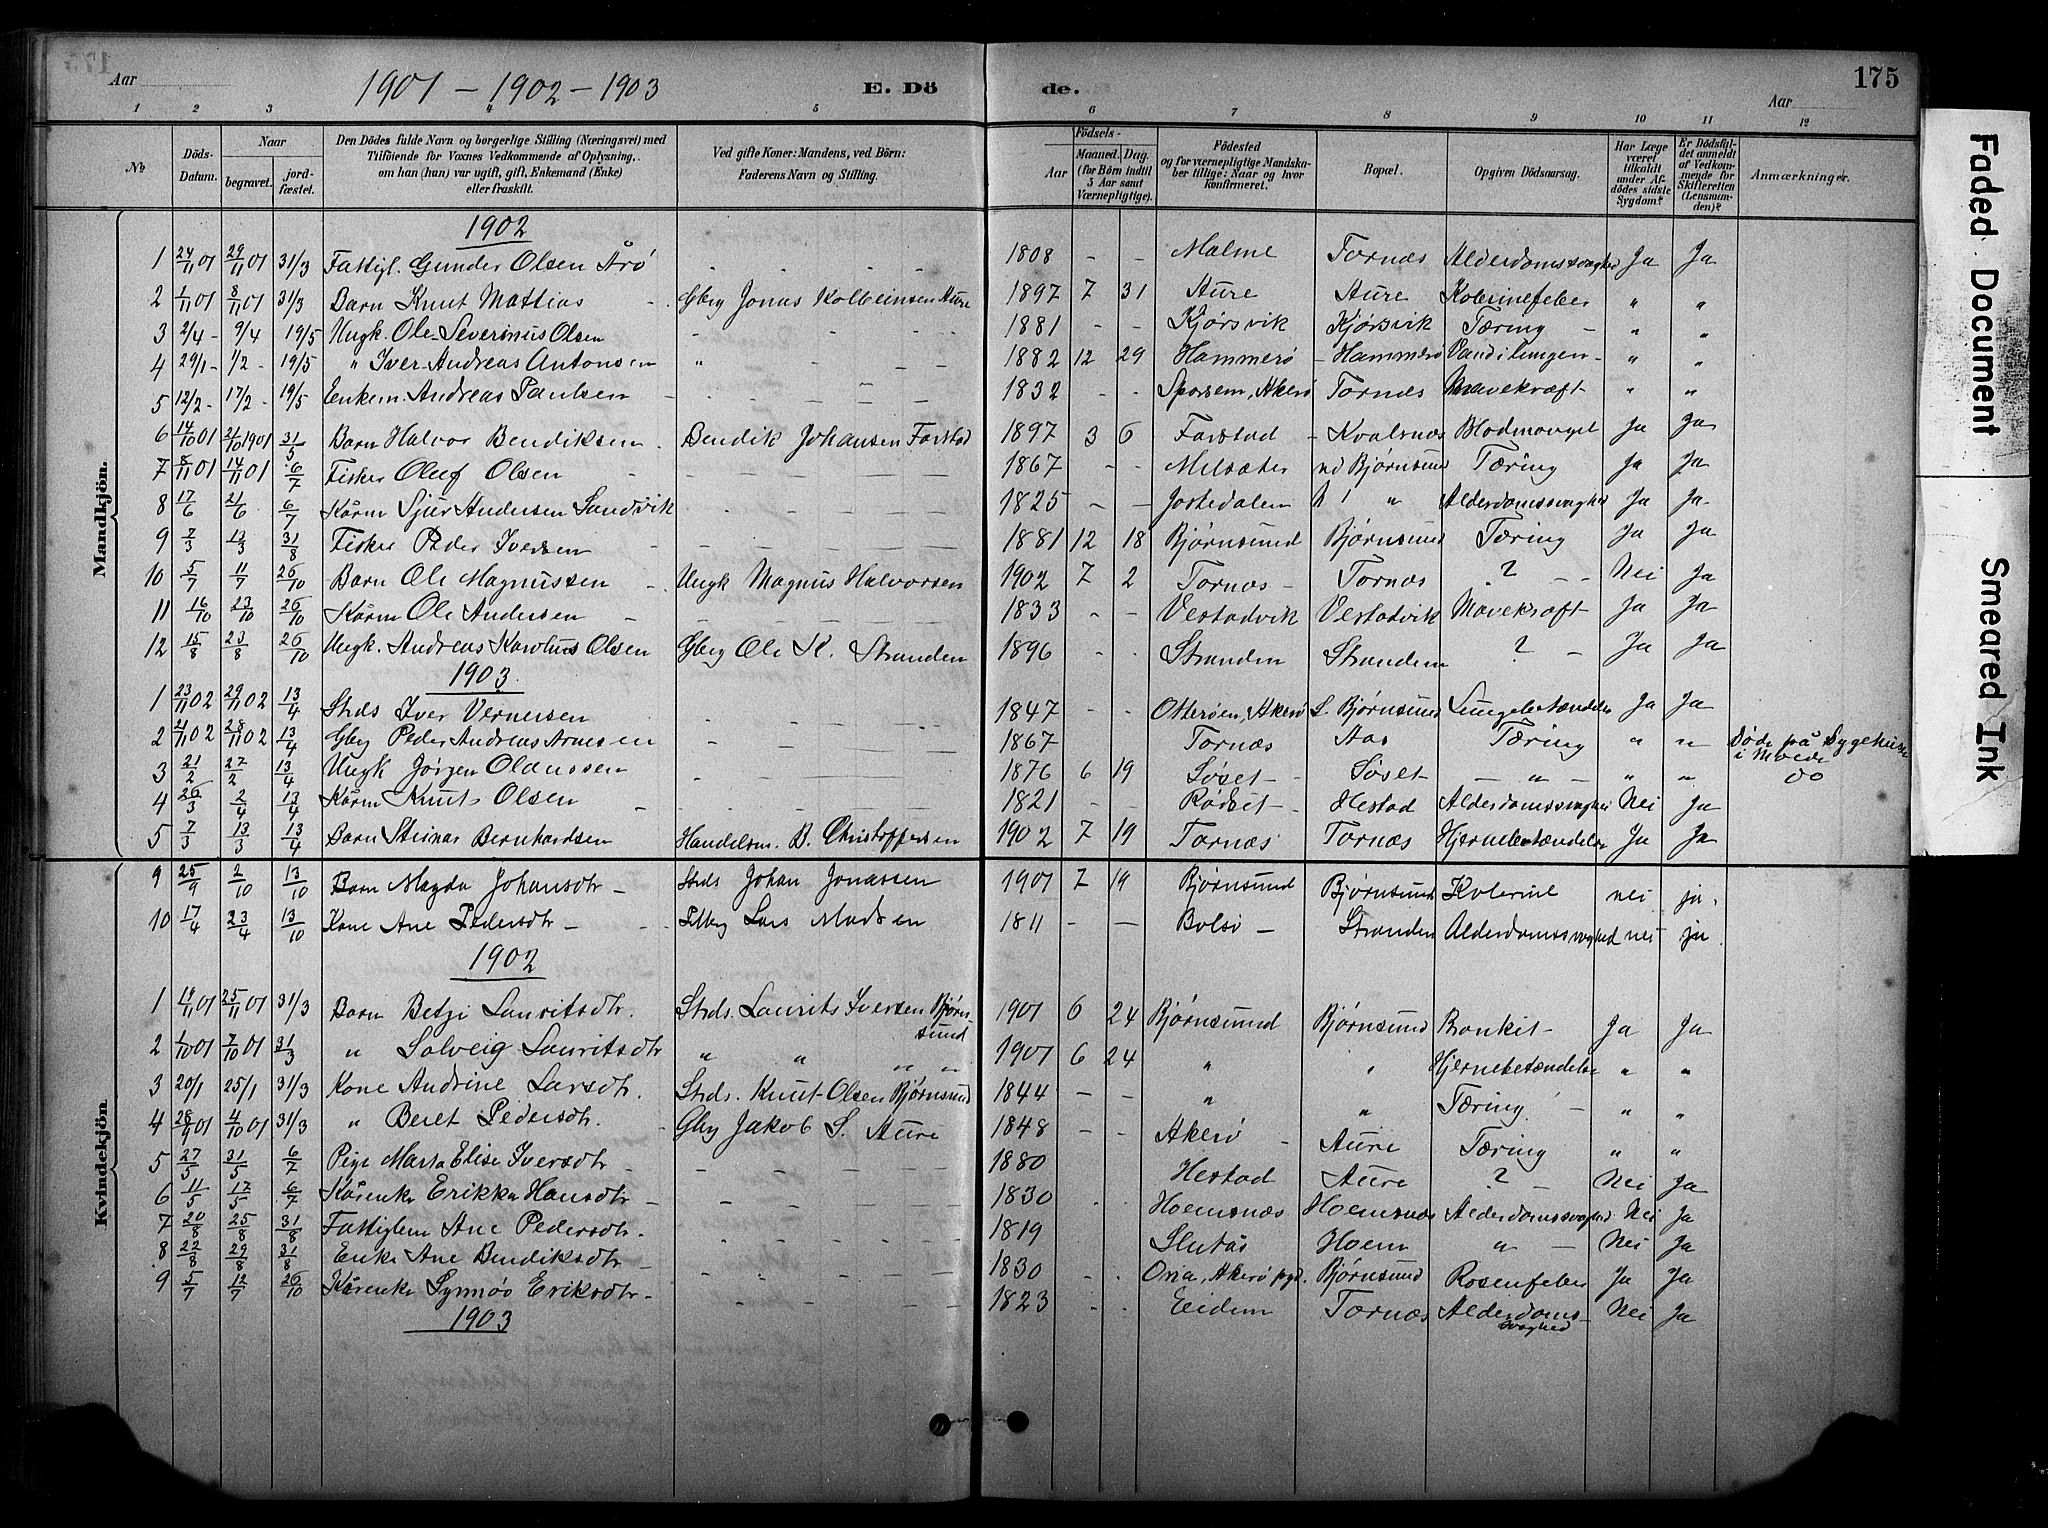 175
Aar 1901 – 1902 – 1903 E. Dö de. Aar
1 2 3 4 5 6 7 8 9 10 11 12
No Döds-Datum. Naar begravet. jordfæstet. Den Dödes fulde Navn og borgerlige Stilling (Næringsvei) med Tilföiende for Voxnes Vedkommende af Oplysning, om han (hun) var ugift, gift, Enkemand (Enke) eller fraskilt. Ved gifte Koner: Mandens, ved Börn: Faderens Navn og Stilling. Födsels- Aar Maaned. Dag. (for Börn indtil 5 Aar samt Værnepligtige). Födested og for værnepligtige Mandskaber tillige: Naar og hvor konfirmeret. Bopæl. Opgiven Dödsaarsag. Har Læge været tilkaldt under Afdödes sidste Sygdom? Er Dödsfaldet anmeldt af Vedkommende for Skifteretten (Lensmanden)? Anmærkninger.
Mandkjön.
1902
1 24/11 01 29/11 01 31/3 Fattigl. Gunder Olsen Årø 1808 – – Malme Tornæs Alderdomssvaghed Ja Ja
2 1/11 01 8/11 01 31/3 Barn Knut Mattias Gbr Jonas Kolbeinsen Aure 1897 7 31 Aure Aure Kolerinefeber " "
3 2/4 – 9/4 19/5 Ungk. Ole Severinus Olsen 1881 – – Kjørsvik Kjørsvik Tæring – " "
4 29/1 – 1/2 – 19/5 " Iver Andreas Antonsen " 1882 12 29 Hammerø – Hammerø Vand i lungen – " "
5 12/2 – 17/2 – 19/5 Enkem. Andreas Paulsen 1832 – – Sporsem, Akerø Tornæs Mavekræft " "
6 14/10 01 21/10 1901 31/5 Barn Halvor Bendiksen Bendik Johansen Farstad 1897 3 6 Farstad – Kvalsnæs Blodmangel Ja Ja
7 8/11 01 14/11 01 6/7 Fisker Oluf Olsen 1867 – – Melsæter nd Bjørnsund Tæring Ja Ja
8 17/6 21/6 6/7 Kårm Sjur Andersen Sandvik 1825 – – Jostedalen " Alderdomssvaghed Ja Ja
9 7/3 13/3 31/8 Fisker Peder Iversen 1881 12 18 Bjørnsund Bjørnsund Tæring Ja Ja
10 5/7 11/7 26/10 Barn Ole Magnussen Ungk Magnus Halvorsen 1902 7 2 Tornæs – Tornæs ? – Nei Ja
11 16/10 23/10 26/10 Kårm Ole Andersen 1833 – – Vestadvik Vestadvik Mavekræft Ja Ja
12 15/8 23/8 26/10 Ungk. Andreas Karolus Olsen Gbr Ole K. Stranden 1896 – – Stranden Stranden ? – Ja Ja
1903
1 23/11 02 29/11 02 13/4 Strds Iver Vernersen 1847 – – Otterøen, Akerø S. Bjørnsund Lungebetændelse Ja Ja
2 21/11 02 28/11 02 13/4 Gbr Peder Andreas Arnesen 1867 Tornæs Aas Tæring " " Døde på Sygehuset i Molde
3 21/2 27/2 13/4 Ungk Jørgen Olaussen 1876 6 19 Søset – Søset – " – " " do
4 26/3 2/4 13/4 Kårm Knut Olsen 1821 – – Rødset – Hestad Alderdomssvaghed Nei Ja
5 7/3 13/3 13/4 Barn Steinar Bernhardsen Handelsm. B. Christoffersen 1902 7 19 Tornæs Tornæs Hjernebetændelse Ja Ja
Kvindekjön.
9 25/9 2/10 13/10 Barn Magda Johansdtr – Strds Johan Jonassen 1901 7 19 Bjørnsund Bjørnsund Kolerine nei ja.
10 17/4 23/4 13/10 Kone Ane Pedersdtr – Lars Madsen 1811 – – Bolsø – Stranden Alderdomssvaghed nei ja
1902
1 19/11 01 25/11 01 31/3 Barn Betzi Lauritsdtr. Strds. Laurits Iversen Bjørnsund 1901 6 24 Bjørnsund Bjørnsund Bronkit – Ja Ja
2 1/10 01 7/10 01 31/3 " Solveig Lauritsdtr " " " " 1901 6 24 " " Hjernebetændelse " "
3 20/1 25/1 31/3 Kone Andrine Larsdtr. Strds. Knut Olsen Bjørnsund 1844 – – " " Tæring – " "
4 28/9 01 4/10 01 31/3 " Beret Pedersdtr. Gbr Jakob S. Aure 1848 – – Akerø – Aure Tæring " "
5 27/5 31/5 6/7 Pige Marta Elise Iversdtr 1880 Hestad Aure ? – Nei Ja
6 11/5 17/5 6/7 Kårenke Erikka Hansdtr 1830 Hoemsnæs Hoemsnæs Alderdomssvaghed Nei Ja
7 20/8 25/8 31/8 Fattiglem Ane Pedersdtr. 1819 Slutås Hoem " – Nei Ja
8 22/8 29/8 31/8 Enke Ane Bendiksdtr 1830 Akerø pgd. Bjørnsund Rosenfeber Ja Ja
9 5/7 12/7 26/10 Kårenke Synnøv Eriksdtr 1823 Eidem Tornæs Alderdomssvaghed Nei Ja
1903
Faded Document
Smeared Ink